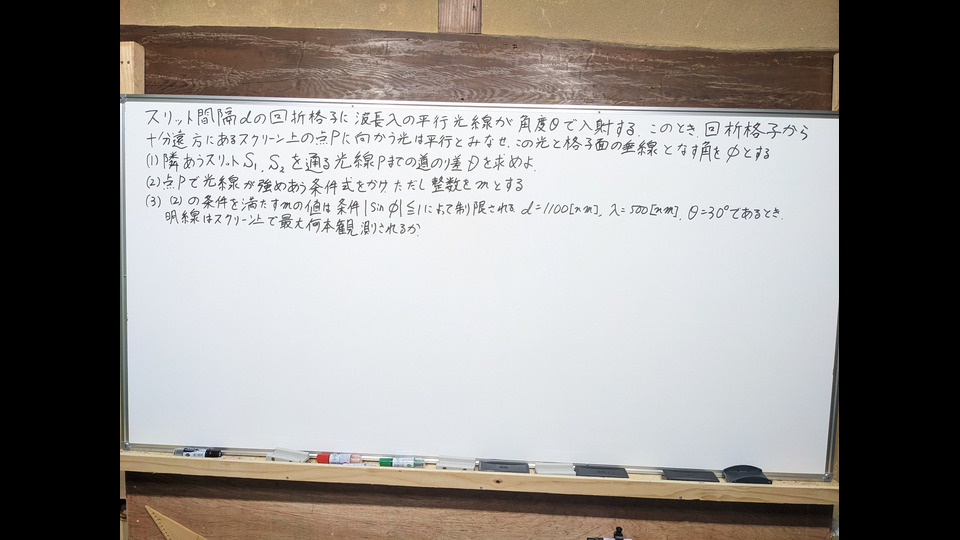 スリット間隔dの回折格子に波長λの平行光線が角度θで入射する。このとき、回折格子から
十分遠方にあるスクリーン上の点Pに向かう光は平行とみなせ、この光と格子面の垂線となす角をφとする
(1) 隣あうスリットS₁,S₂を通る光線Pまでの道のり差Dを求めよ
(2) 点Pで光線が強めあう条件式をかけ、ただし整数をmとする
(3) (2)の条件を満たすmの値は条件|sinφ|≦1によって制限される d=1100[nm]、λ=500[nm]、θ=30°であるとき、
明線はスクリーン上で最大何本観測されるか?